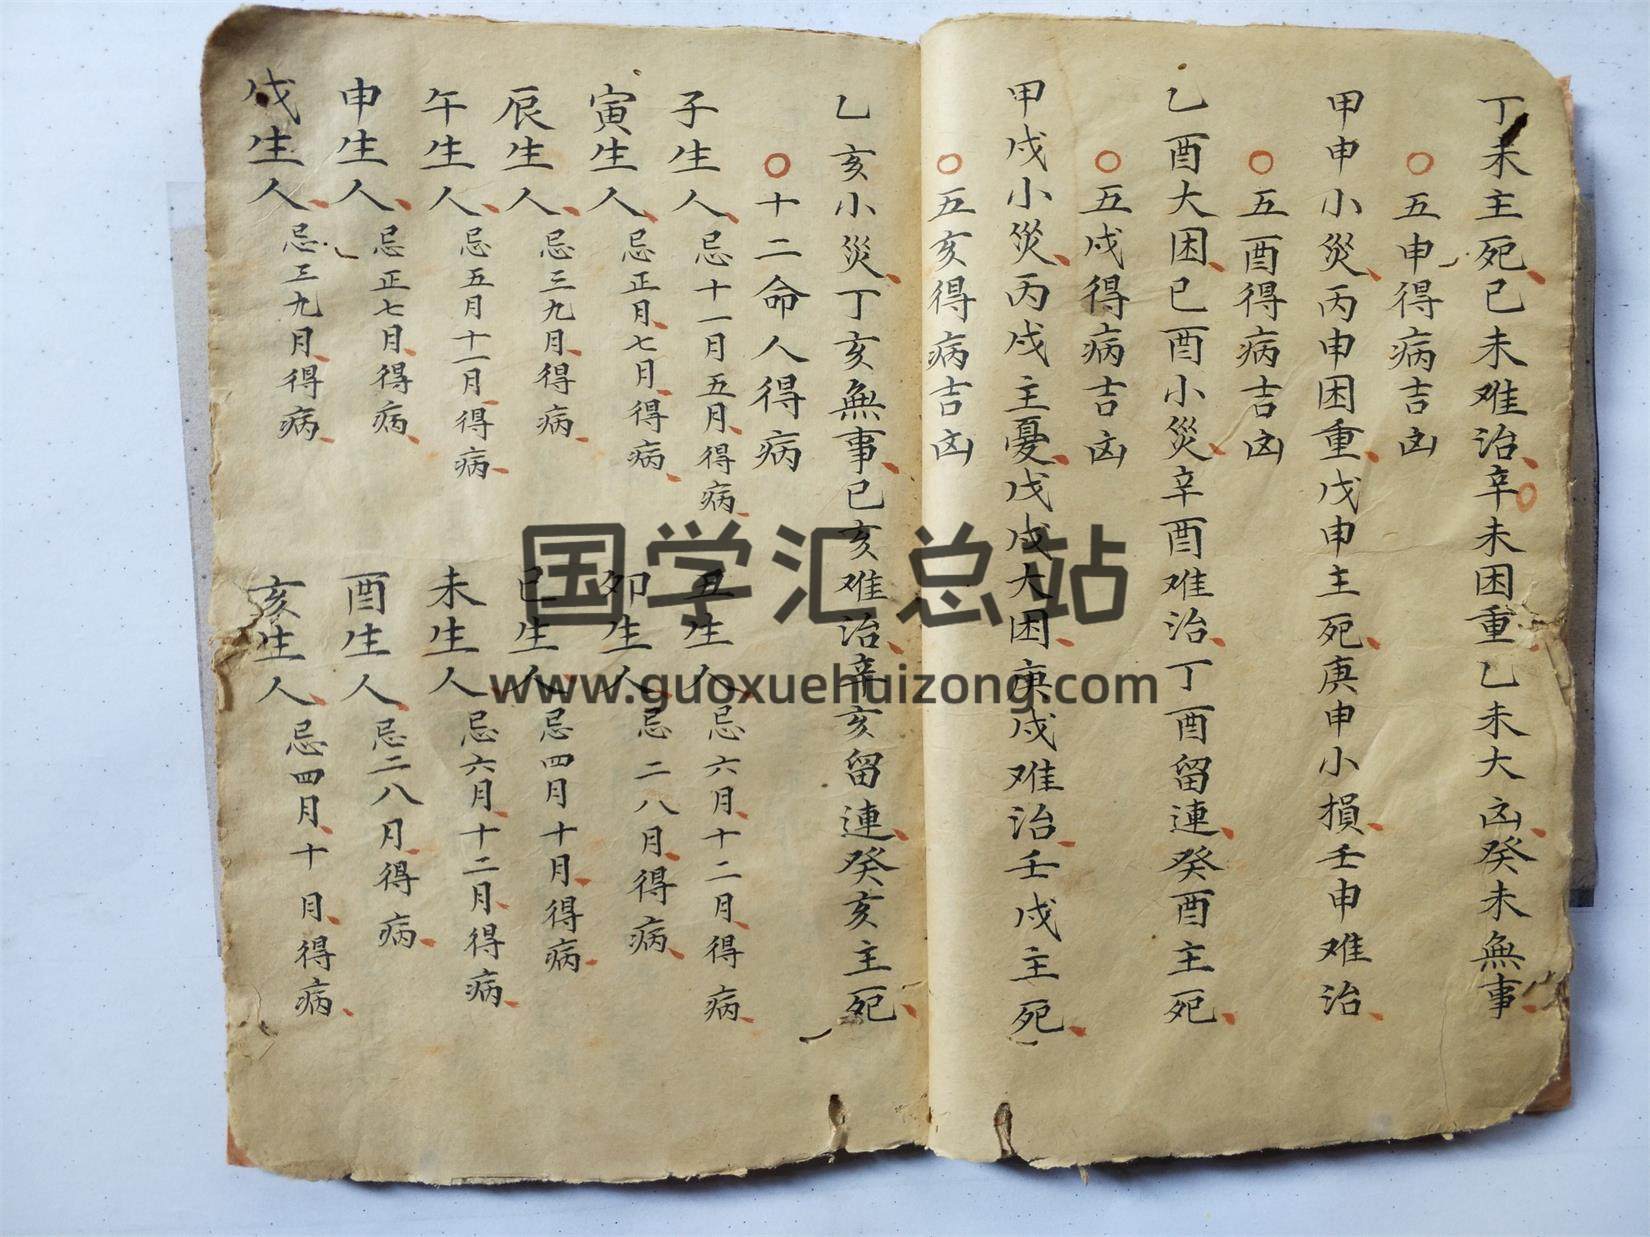 丁未主死己未难治辛未困重乙未大凶癸未無事
五申得病吉凶
甲申小災丙申困重戊申主死庚申小損壬申难治
五酉得病吉凶
乙酉大困己酉小災辛酉难治丁酉留連癸酉主死
五戌得病吉凶
甲戌小災丙戌主憂戊戌大困庚戌难治壬戌主死
五亥得病吉凶
乙亥小災丁亥無事己亥难治辛亥留連癸亥主死
十二命人得病
子生人忌十一月五月得病
丑生人忌六月十二月得病
寅生人忌正月七月得病
卯生人忌二八月得病
辰生人忌三九月得病
巳生人忌四月十月得病
午生人忌五月十一月得病
未生人忌六月十二月得病
申生人忌正七月得病
酉生人忌二八月得病
戌生人忌三九月得病
亥生人忌四月十月得病
国学汇总站
www.guoxuehuizong.com